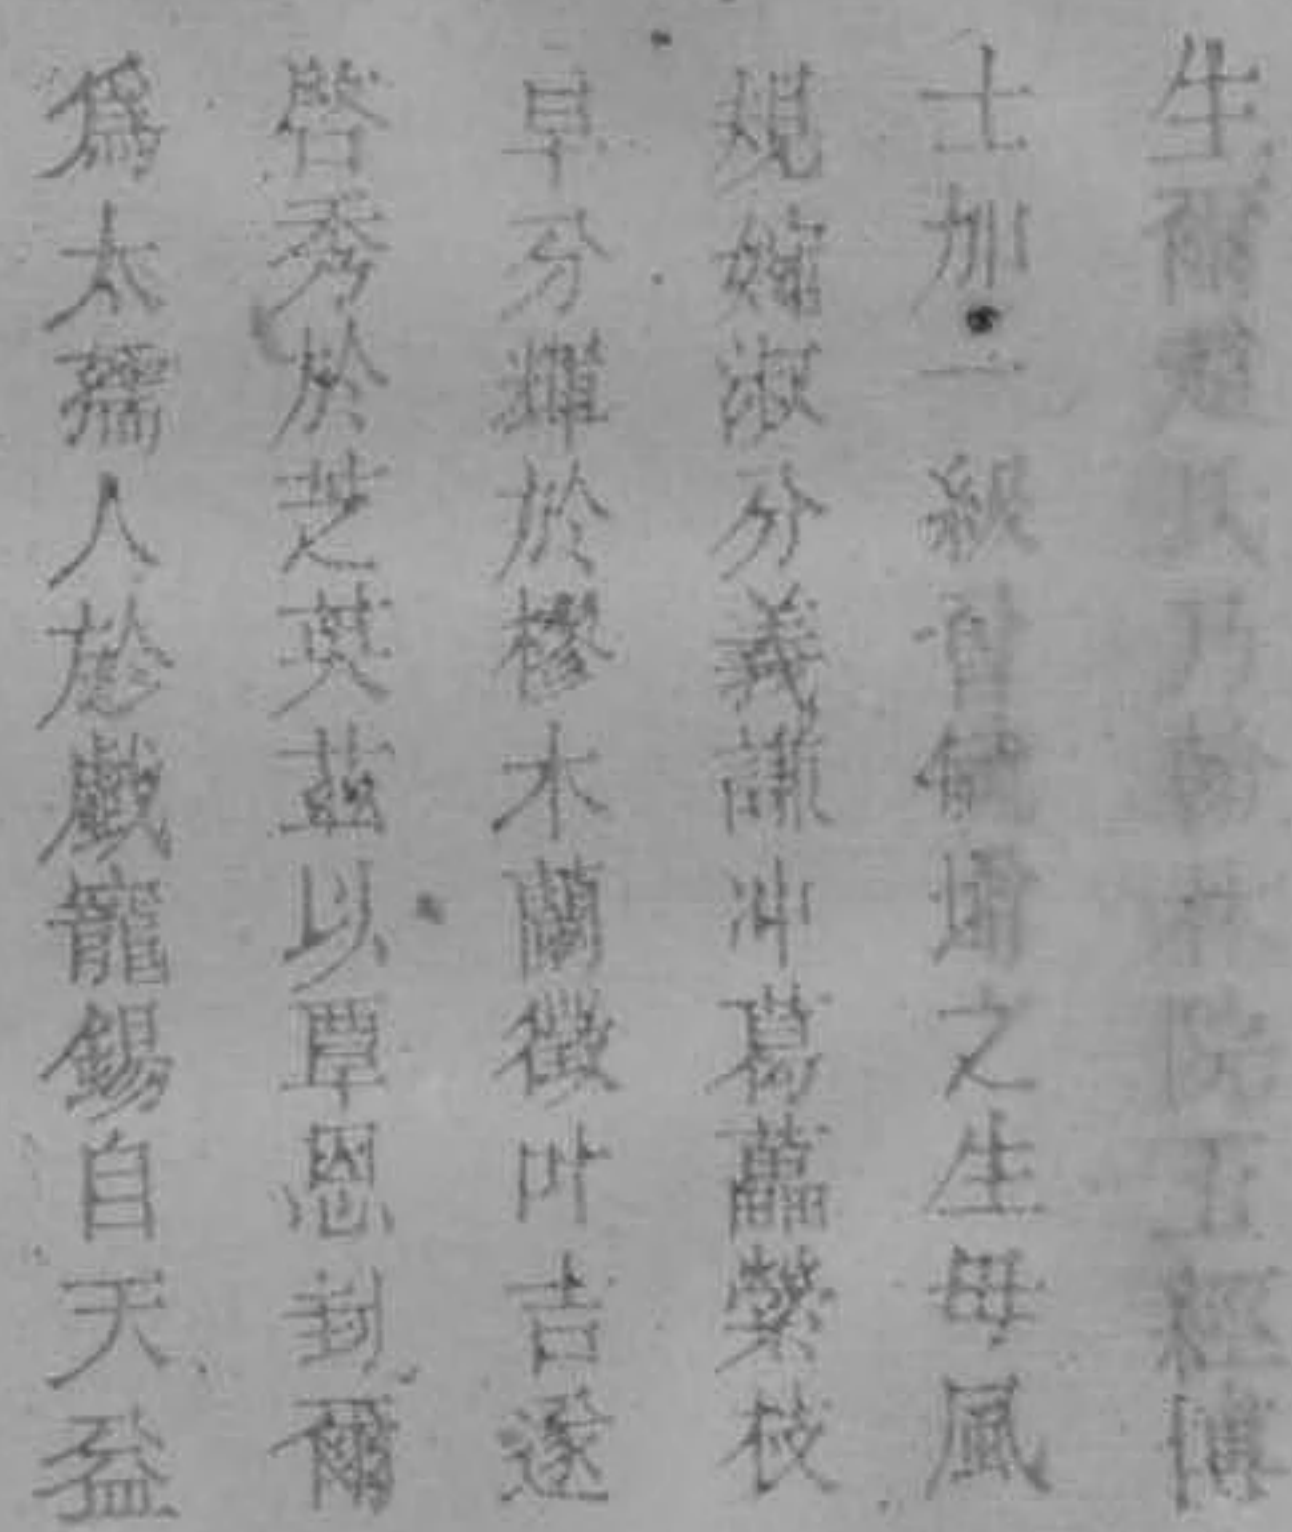 生爾趙氏乃翰林院五經博
士加一級曾毓墫之生母風
規婉淑分義謙沖葛藟縈枝
早分輝於樛木蘭徵叶吉遂
啓秀於芝英茲以覃恩封爾
爲太孺人於戲寵錫自天益